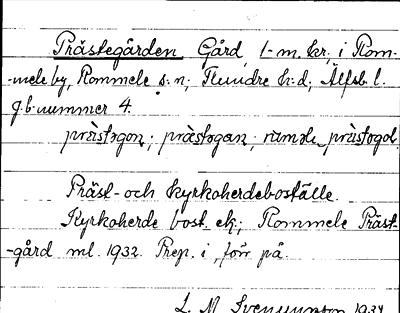 Prästegården Gård, 1 m. kr. i Rom-
-mele by, Rommele s:n; Flundre h:d; Älfsb. l.
g.b. nummer 4.
prästogon; prästogan;
Präst- och kyrkoherdeboställe.
Kyrkoherde bost. ek.; Rommele Präst-
-gård ml. 1932. Prep. i, förr på.
1934